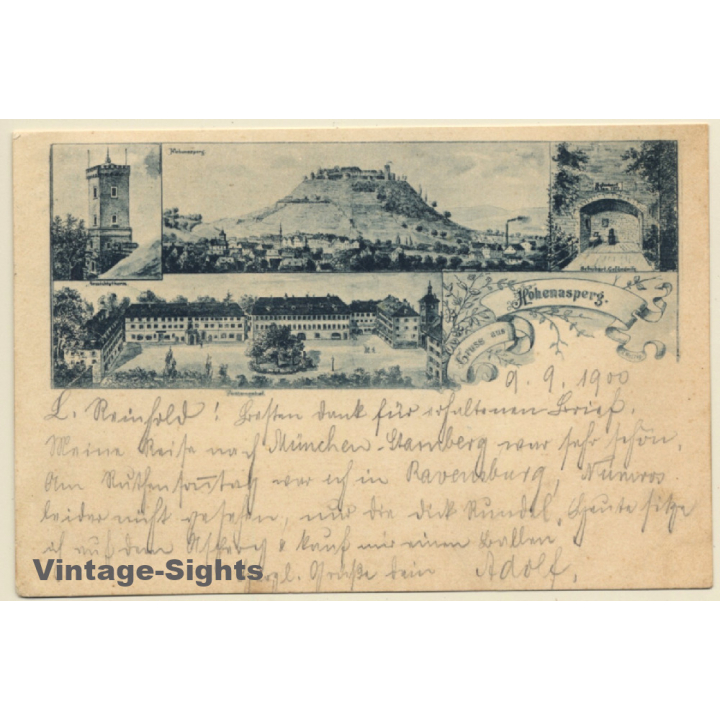 Hohenasperg.
Schubart Gefängnis
Festungshof.
Gruss aus
Hohenasperg.
9. 9. 1900
L. Reinhold! Besten dank für erhaltenen Brief.
Meine Reise nach München-Starnberg war sehr schön.
Am Ruthensonntag war ich in Ravensburg,
leider nicht gesehen, nur die dick Rundel. Heute sitze
ich auf dem Asperg & kauf mir einen Ballen
Herzl. Grüße dein Adolf.
Vintage-Sights